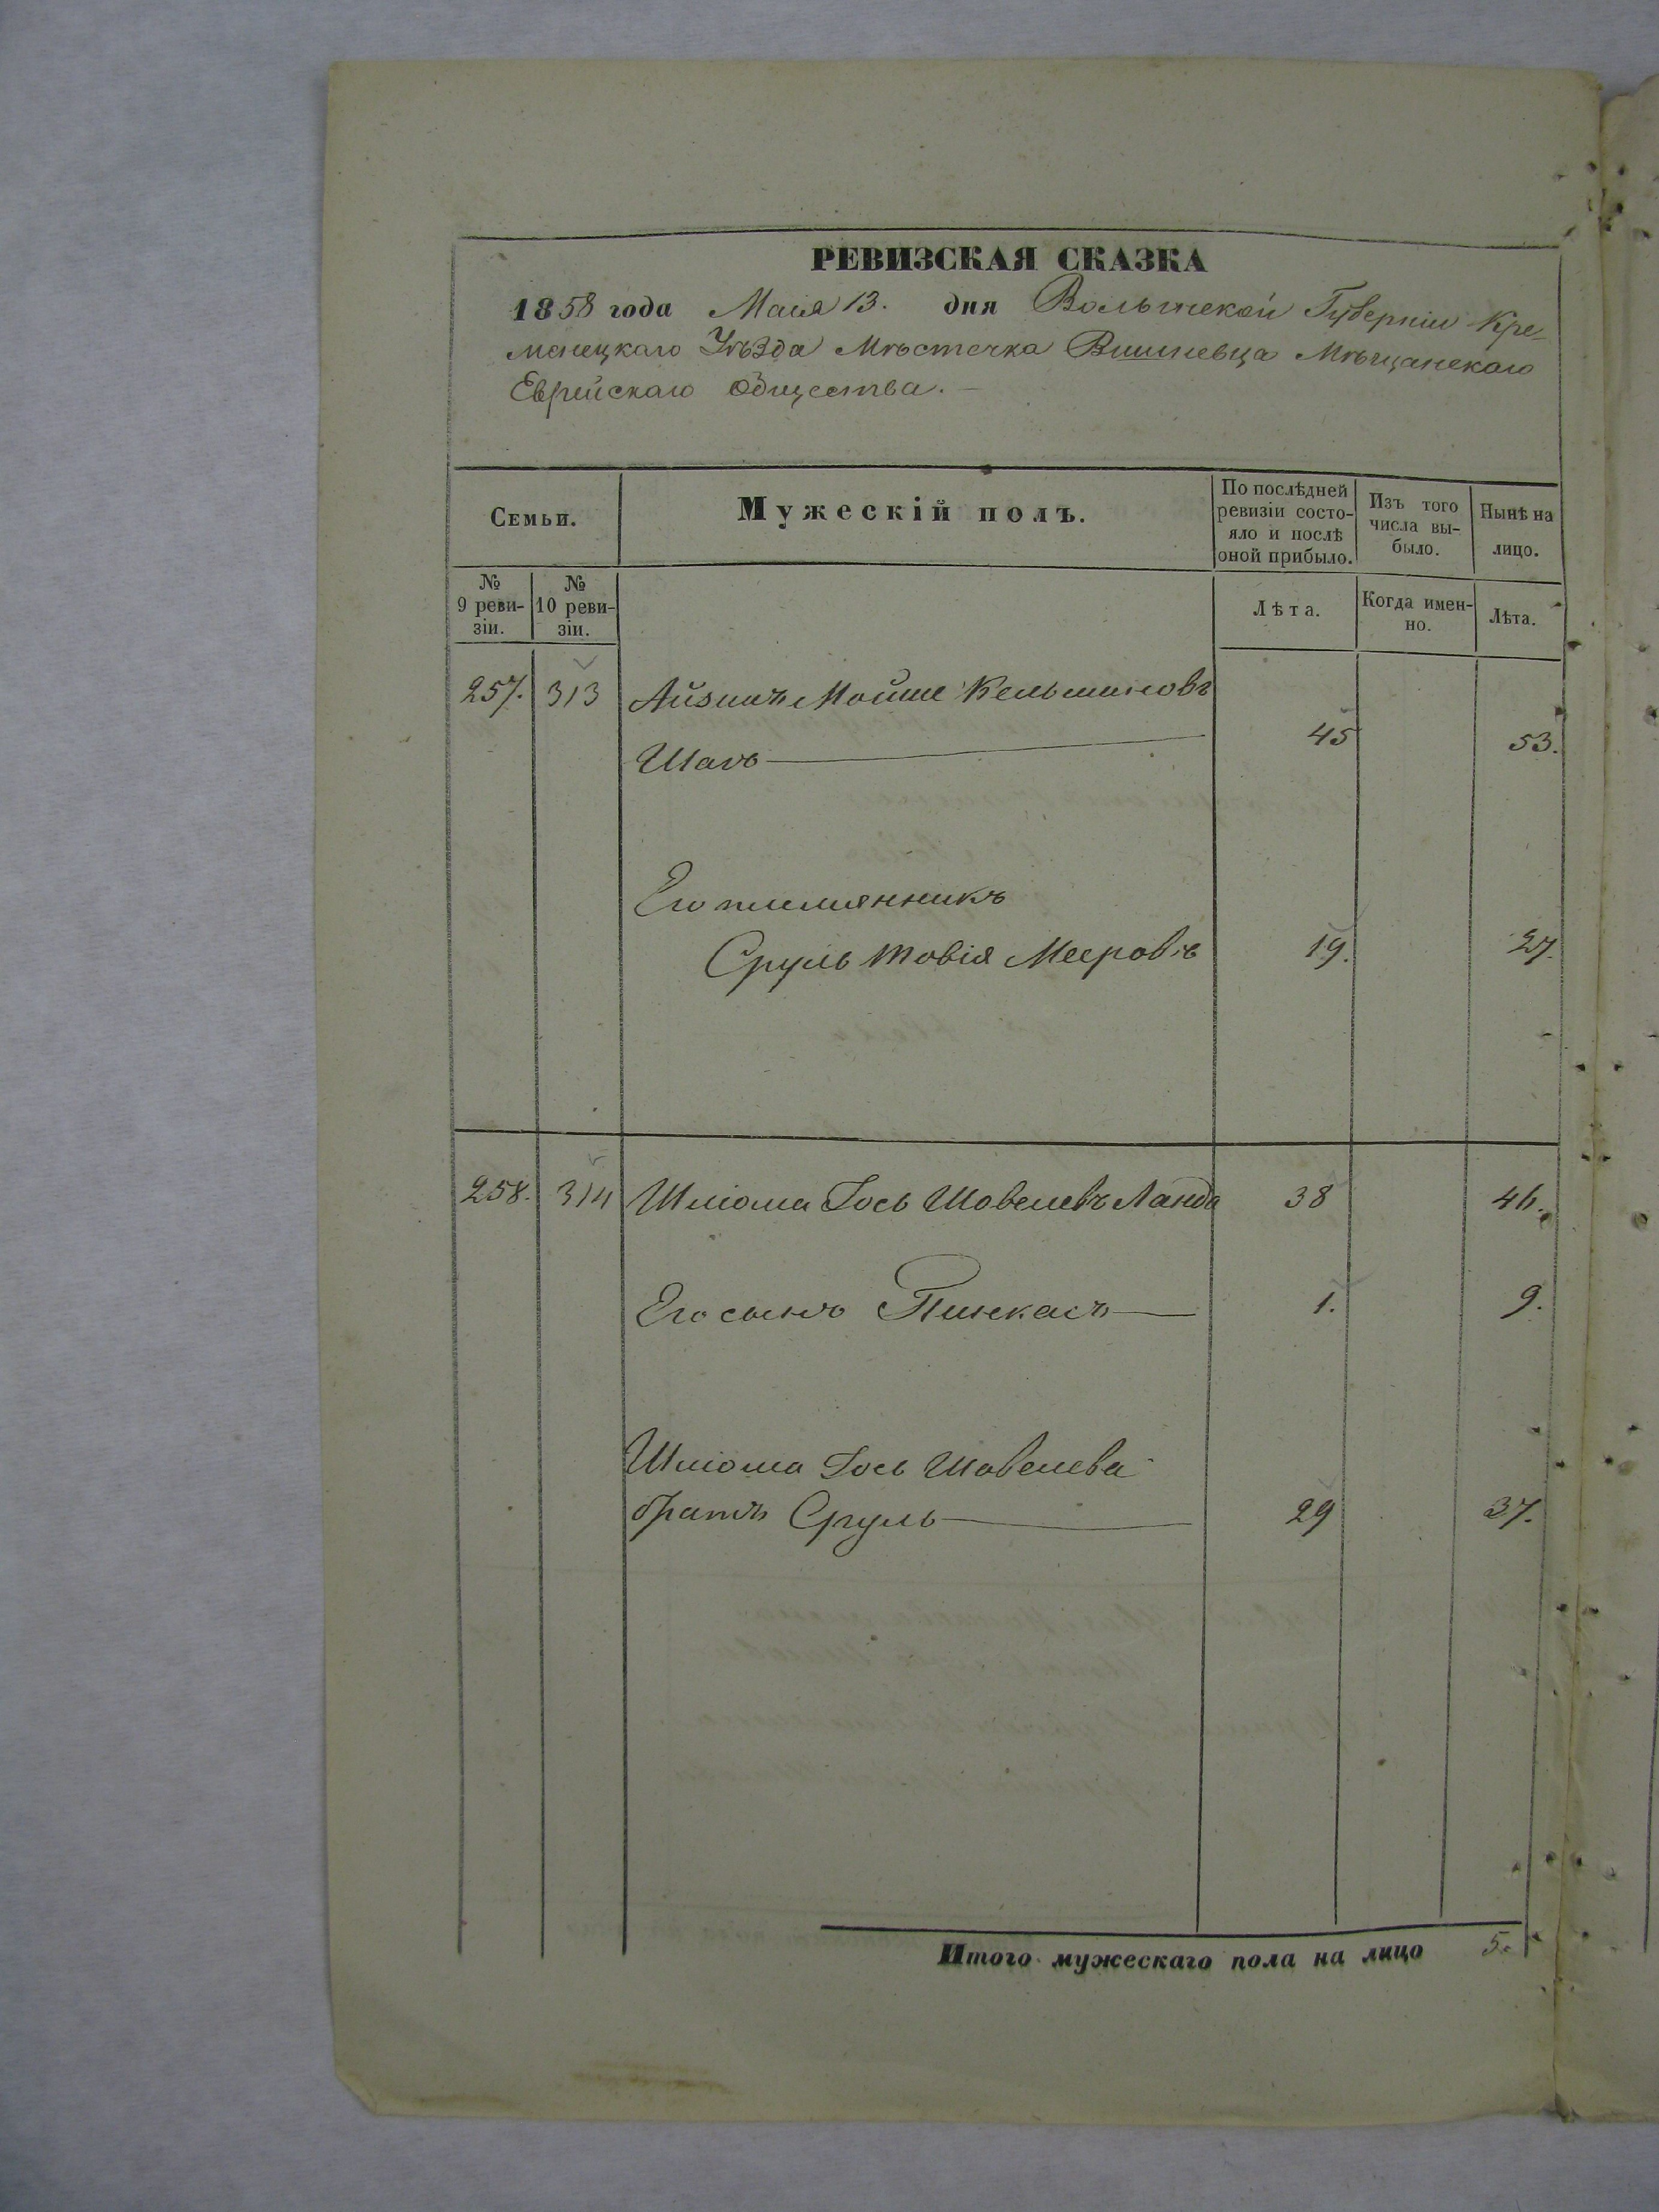 РЕВИЗСКАЯ СКАЗКА
1858 года Маія 13. дня Волынской Губерніи Кре-
менецкаго Уѣзда Мѣстечка Вишневца Мѣщанскаго
Еврейскаго Общества.
Семьи.
Мужескій полъ.
По послѣдней ревизіи состо-
яло и послѣ оной прибыло.
Изъ того числа вы-
было.
Нынѣ на лицо.
№ 9 реви-
зіи.
№ 10 реви-
зіи.
Лѣта.
Когда имен-
но.
Лѣта.
257. 313 Айзикъ Мойше Кельманов
Шац 45 53.
Его племянникъ
Сруль Товія Мееровъ 19. 27.
258. 314 Шліома Іось Шовелевъ Ланда 38 46.
Его сынъ Пинкасъ 1. 9.
Шліома Іось Шовелева
братъ Сруль 29 37.
Итого мужескаго пола на лицо 5.